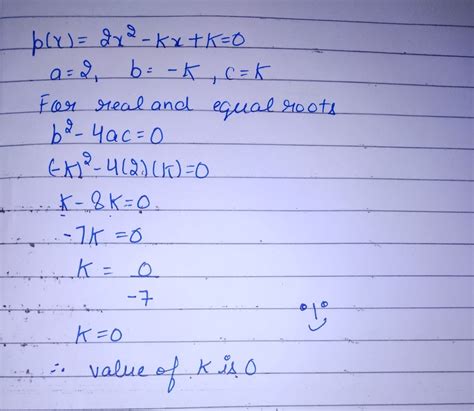 p(x) = 2x² - Kx + K = 0
a = 2, b = -K, c = K
For real and equal roots
b² - 4ac = 0
(-K)² - 4(2)(K) = 0
K - 8K = 0
-7K = 0
K = 0/-7
K = 0
∴ value of K is 0